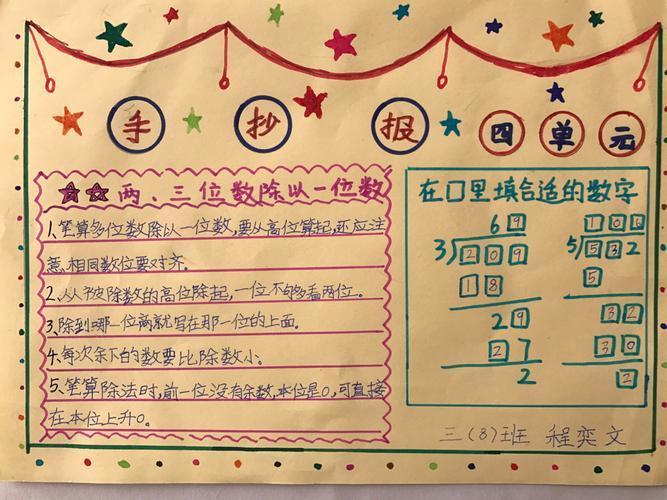 手抄报 四单元
两、三位数除以一位数
1、笔算多位数除以一位数,要从高位算起,还应注
意、相同数位要对齐。
2、从被除数的高位除起,一位不够多看两位。
3、除到哪一位商就写在那一位的上面。
4、每次余下的数要比除数小。
5、笔算除法时,前一位没有余数,本位是0,可直接
在本位上升0。
在□里填合适的数字
69
3)209
18
29
27
2
10
5)532
5
32
30
2
三(8)班 程奕文